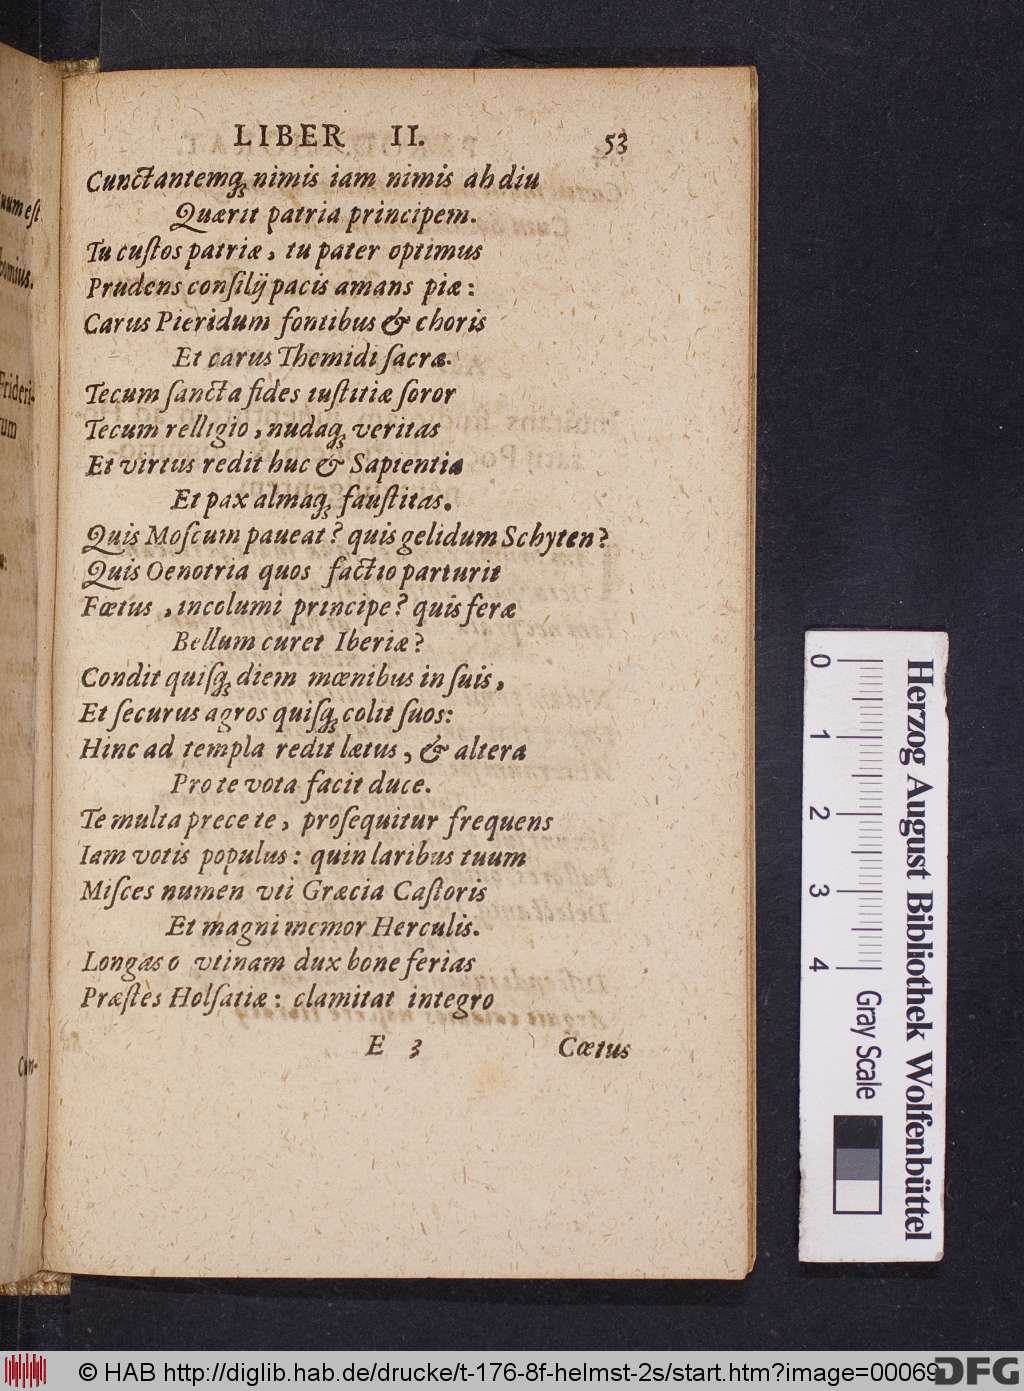 LIBER II. 53
Cunctantemq́ꝫ nimis iam nimis ah diu
Quærit patria principem.
Tu cuſtos patriæ, tu pater optimus
Prudens conſilij pacis amans piæ:
Carus Pieridum fontibus & choris
Et carus Themidi ſacræ.
Tecum ſancta fides iuſtitiæ ſoror
Tecum relligio, nudaq́ꝫ veritas
Et virtus redit huc & Sapientia
Et pax almaq́ꝫ fauſtitas.
Quis Moſcum paueat? quis gelidum Schyten?
Quis Oenotria quos factio parturit
Fœtus, incolumi principe? quis feræ
Bellum curet Iberiæ?
Condit quiſq́ꝫ diem mœnibus in ſuis,
Et ſecurus agros quiſq́ꝫ colit ſuos:
Hinc ad templa redit lætus, & altera
Pro te vota facit duce.
Te multa prece te, proſequitur frequens
Iam votis populus: quin laribus tuum
Miſces numen vti Græcia Caſtoris
Et magni memor Herculis.
Longas o vtinam dux bone ferias
Præſtes Holſatiæ: clamitat integro
E 3 Cœtus
uum eſt
Frideri-
rum
Cun-
0 1 2 3 4
Gray Scale
Herzog August Bibliothek Wolfenbüttel
© HAB http://diglib.hab.de/drucke/t-176-8f-helmst-2s/start.htm?image=00069
DFG